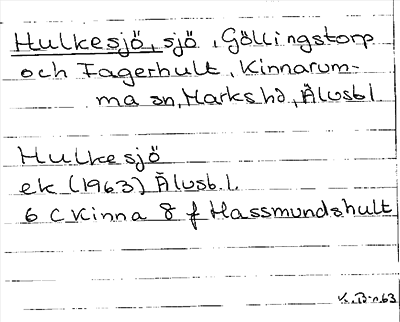 Hulkesjö, sjö, Göllingstorp
och Fagerhult, Kinnarum-
ma sn, Marks hd, Älvsb l
Hulkesjö
ek (1963) Älvsb. l.
6 C Kinna 8 f Hassmundshult